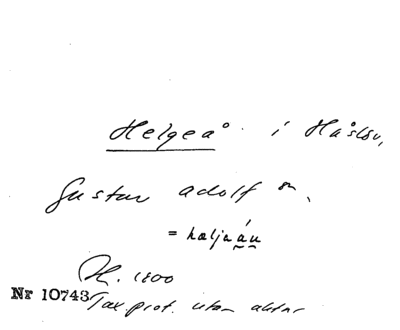 Helgeå i Håslöv,
Gustav Adolf sn.
= hæljaáu
H. 1800
Nr 10743 Tax prot. utan aktnr